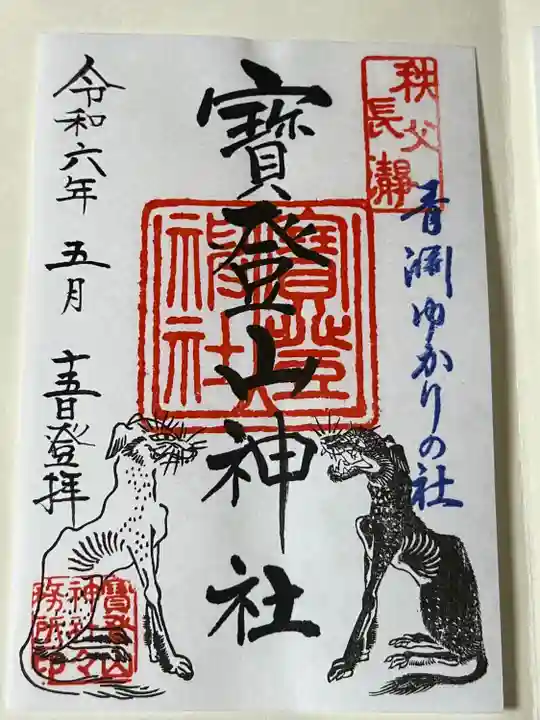 秩父
長瀞
青淵ゆかりの社
寶登山神社
寶登山
神社
令和六年 五月 十五日登拝
寶登山
神社々
務所印